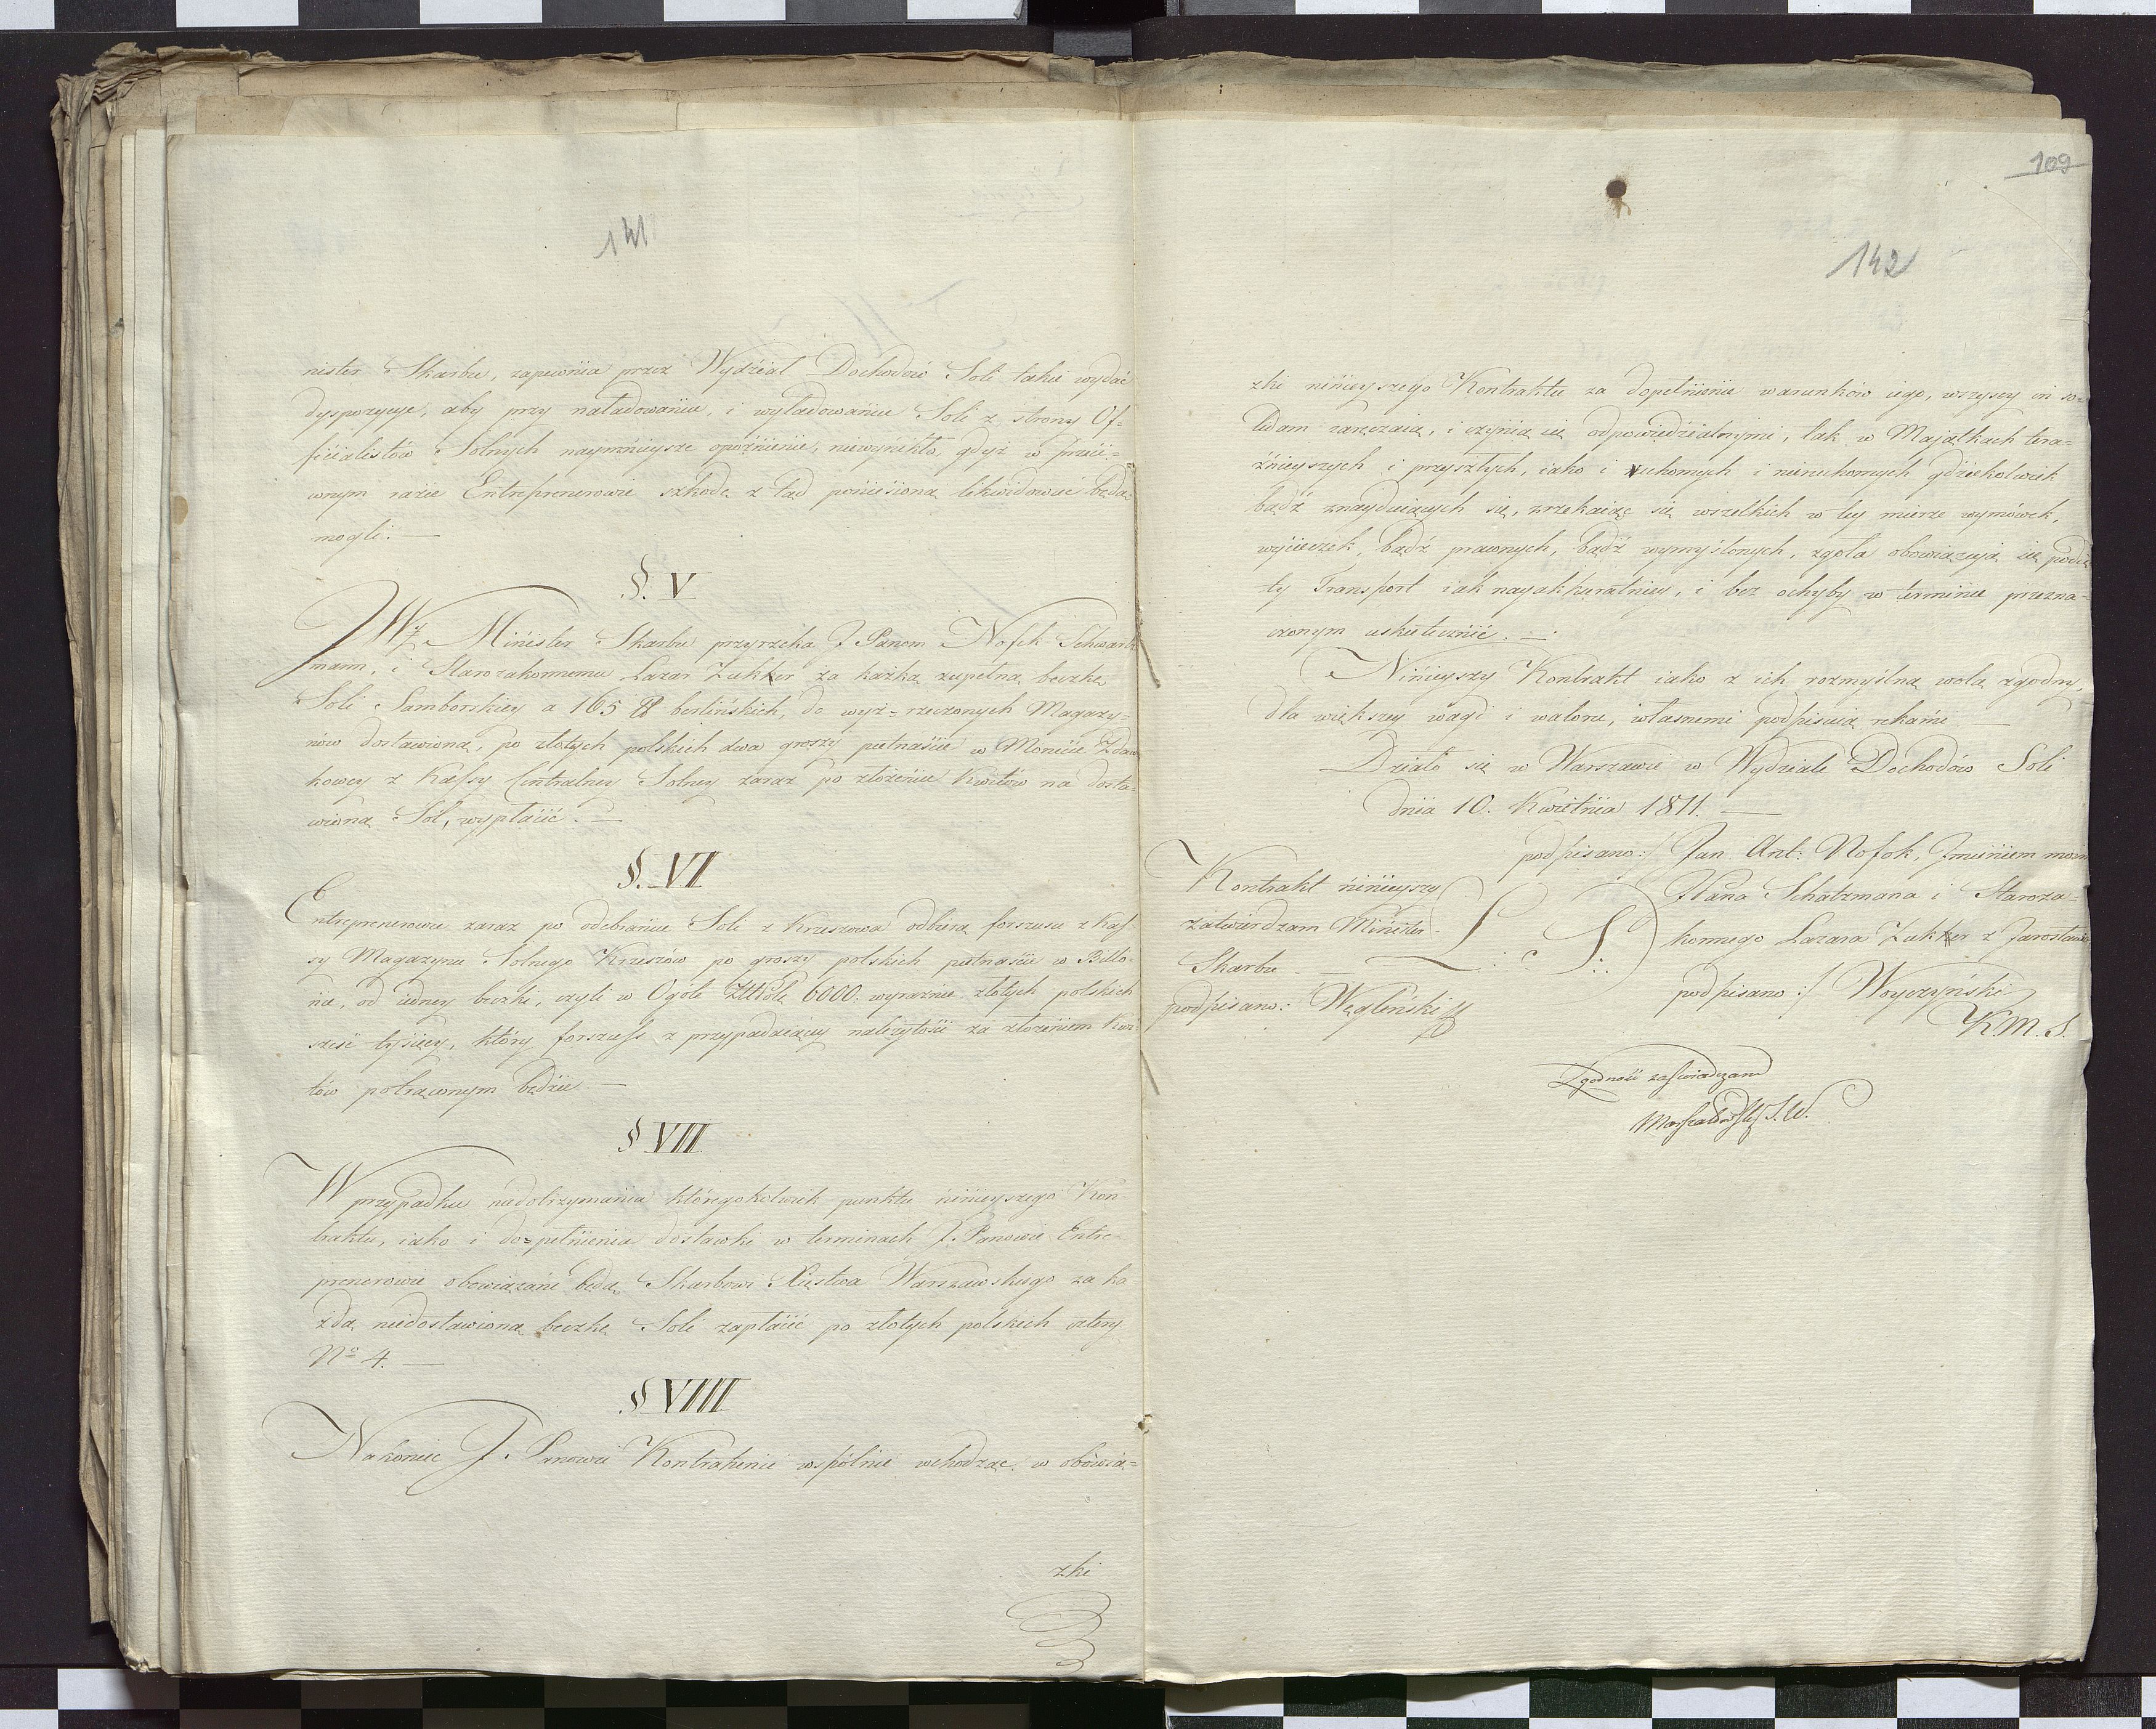 141
nister Skarbu, zapewnia przez Wydział Dochodów Soli takie wydać
dyspozycye, aby przy naładowaniu, i wyładowaniu Soli z strony Of=
ficialistów Solnych naymnieysze opoźnienie, niewynikło, gdyż w przeci=
wnym razie Entreprenerowie szkodę z tąd poniesioną likwidować będą
mogli. —
§. V
JW. Minister Skarbu przyrzeka J Panom Nofok Schwartz
mann, i Starozakonnemu Lazar Zukker za każką zupełną beczkę
Soli Samborskiey a 165 ℔ berlińskich, do wyż=rzeczonych Magazy=
nów dostawioną, po złotych polskich dwa groszy piętnaście w Monecie Zdaw
kowey z Kassy Centralney Solney zaraz po złożeniu Kwitów na dosta=
wioną Sól, wypłacić. —
§. VI
Entreprenerowie zaraz po odebraniu Soli z Krzeszowa odbiorą forszusu z Kas=
sy Magazynu Solnego Krzeszów po groszy polskich piętnaście w Billo=
nie, od iedney beczki, czyli w Ogóle 6000. wyraźnie złotych polskich
sześć tysięcy, który forszuss z przypadaiącey należytości za złożeniem Kwi=
tów potrąconym będzie —
§ VII
W przypadku niedotrzymania któregokolwiek punktu ninieyszego Kon
traktu, iako i do=pełnienia dostawki w terminach J. Panowie Entre
prenerowie obowiązani będą Skarbowi Xięstwa Warszawskiego za ka
żdą niedostawioną beczkę Soli zapłacić po złotych polskich cztery
No 4. —
§ VIII
Nakoniec J. Panowie Kontrahenci wspólnie wchodząc w obowią=
zki
109
142
zki ninieyszego Kontraktu za dopełnienie warunków iego, wszyscy in so=
lidam zaręczaią, i czynią się odpowiedzialnymi, tak w Maiątkach tera=
źnieyszych i przyszłych, iako i ruchomych i nieruchomych gdziekolwiek
bądź znayduiących się, zrzekaiąc się wszelkich w tey mierze wymówek,
wycieczek, bądź prawnych, bądź wymyślonych, zgoła obowiązuią się podię
ty Transport iak nayakkuratniey, i bez ochyby w terminie przezna=
czonym uskutecznić. —
Ninieyszy Kontrakt iako z ich rozmyślną wolą zgodny,
dla większey wagi i waloru, własnemi podpisuią rękami —
Działo się w Warszawie w Wydziale Dochodów Soli
dnia 10. Kwietnia 1811. —
podpisano:/ Jan Ant: Nofok, Imieniem mom
Pana Schatzmana i Staroza=
konnego Lazara Zukker z Jarosławia
Kontrakt ninieyszy
zatwierdzam Minister
Skarbu —
podpisano: Węgleński
L: S:
podpisano:/ Woyczyński
K. M. S.
Zgodność zaświadczam
Marszałkowski S. W.